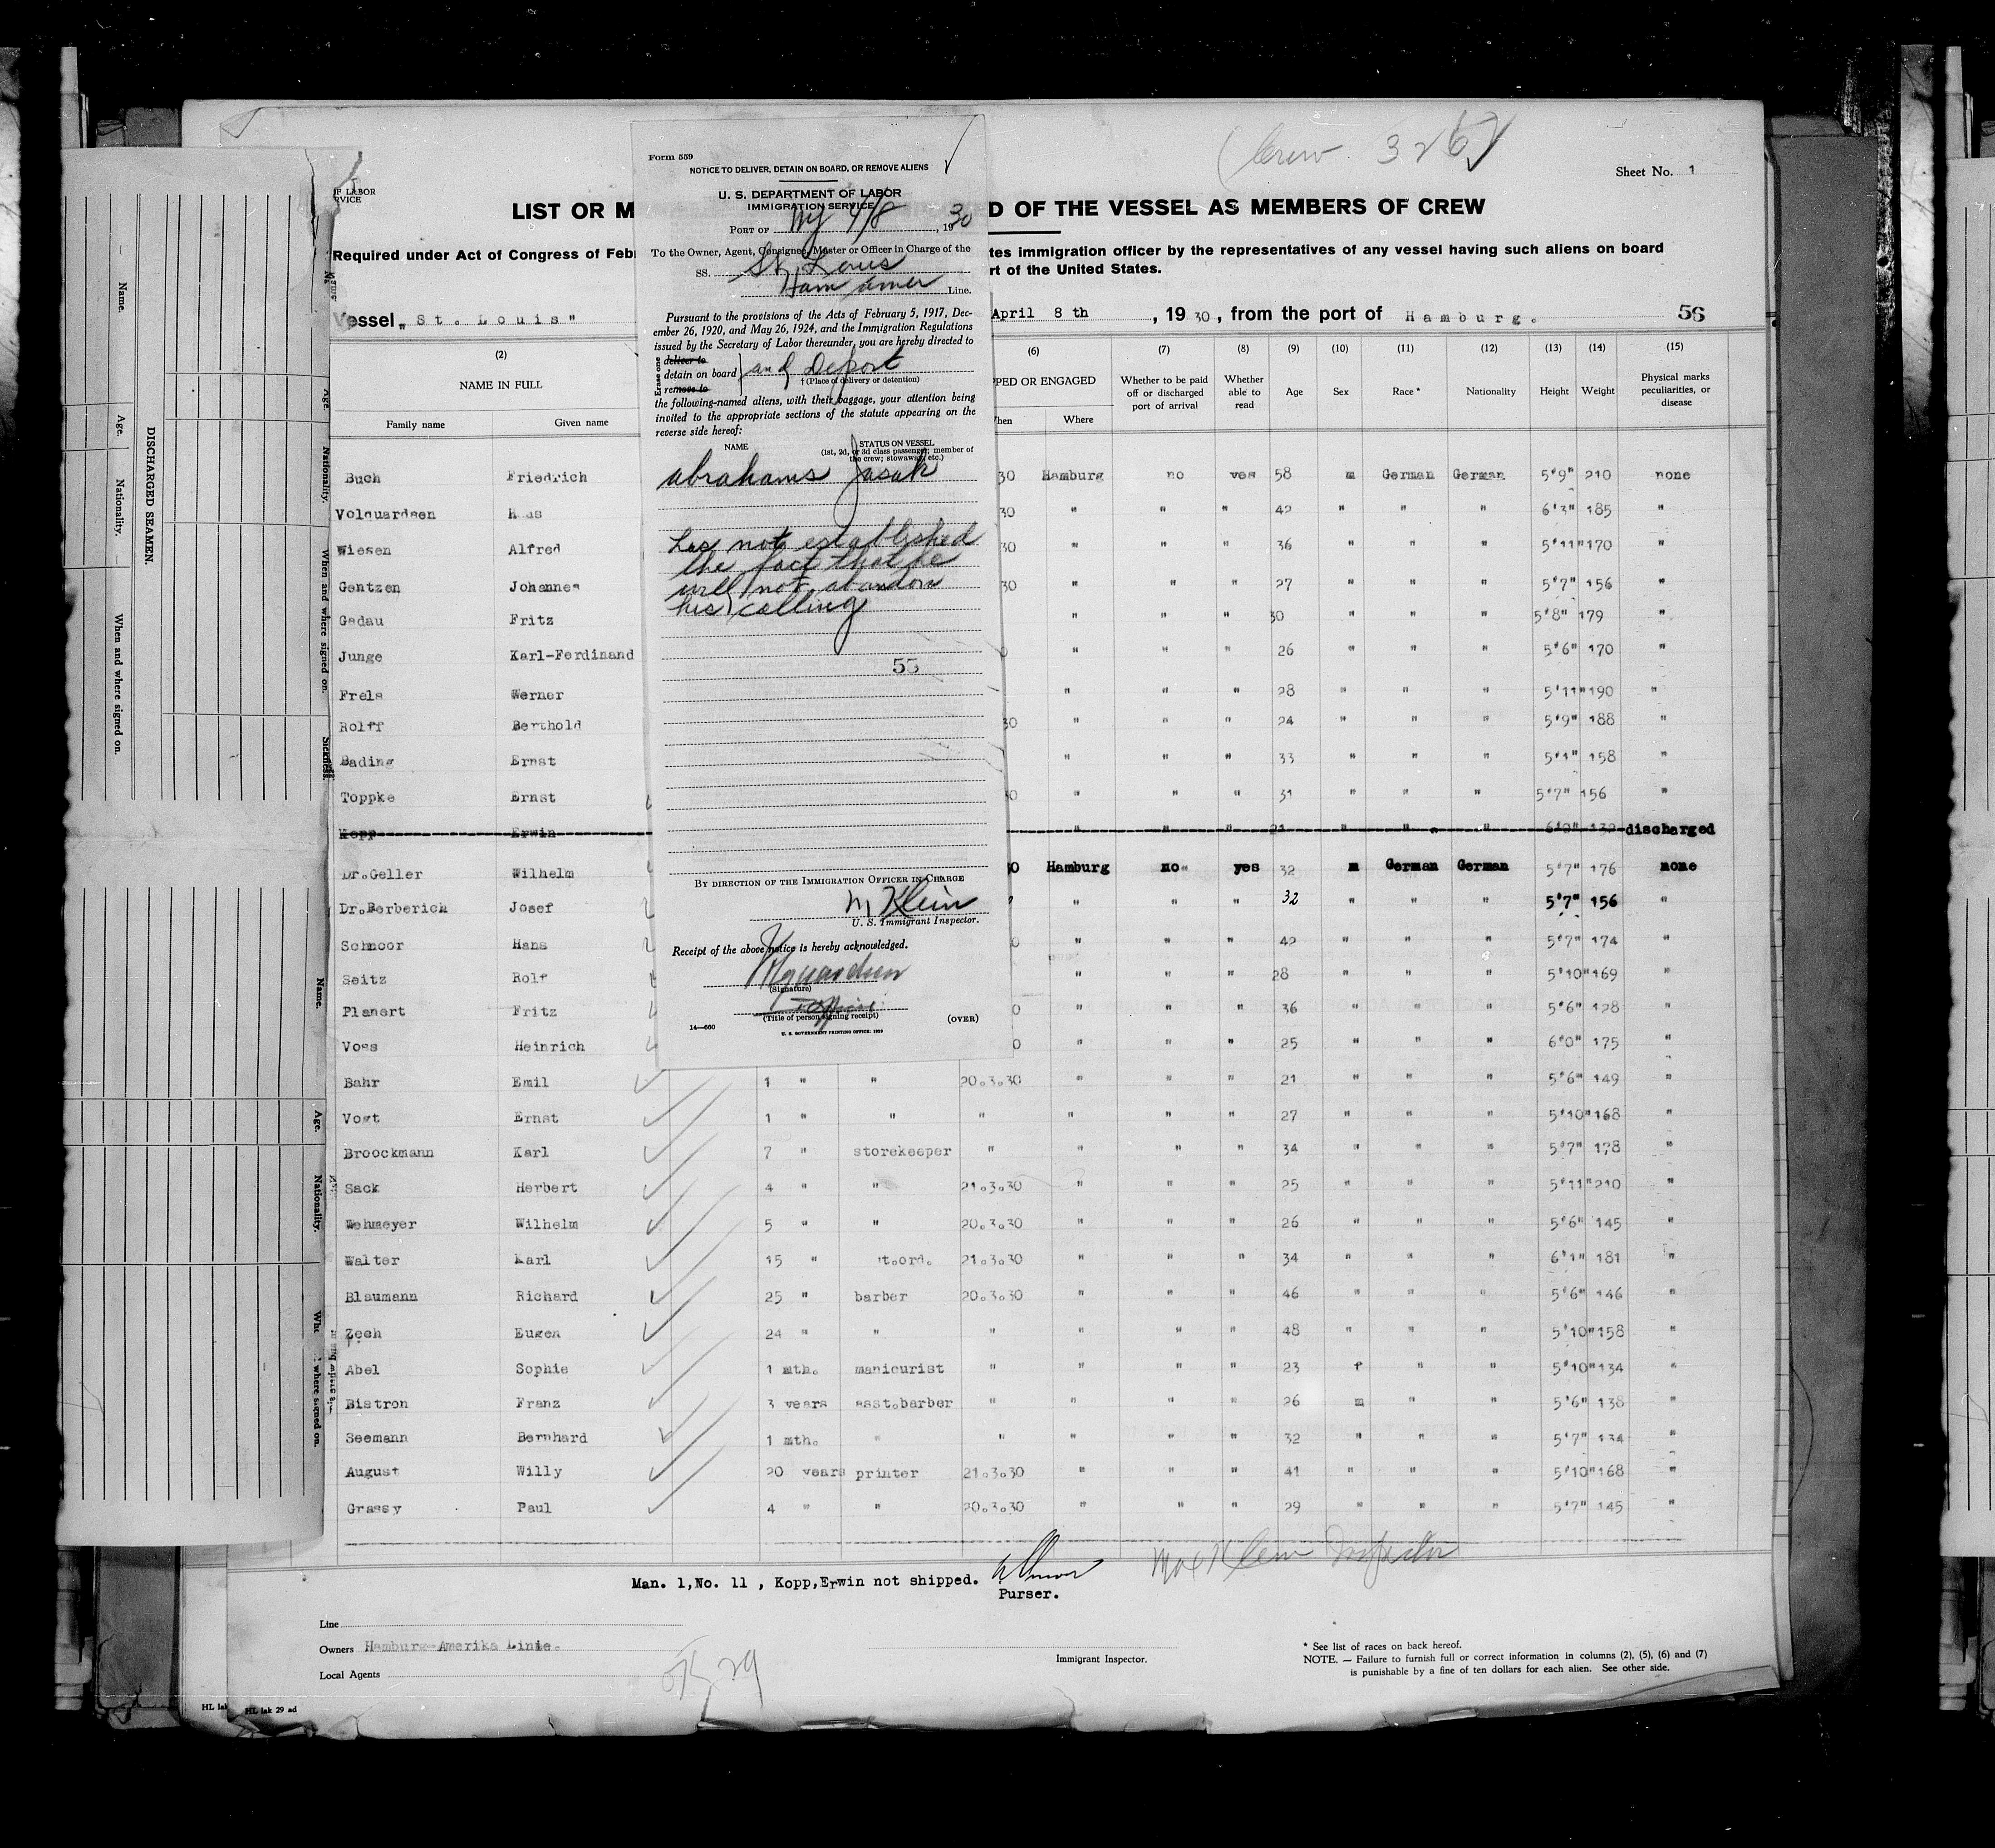 (Crew. 326)
Sheet No. 1
LIST OR M
D OF THE VESSEL AS MEMBERS OF CREW
Required under Act of Congress of Feb
tes immigration officer by the representatives of any vessel having such aliens on board
rt of the United States.
Vessel „St. Louis"
April 8 th , 1930, from the port of Hamburg. 56
Form 559
NOTICE TO DELIVER, DETAIN ON BOARD, OR REMOVE ALIENS
U. S. DEPARTMENT OF LABOR
IMMIGRATION SERVICE
PORT OF NY 4/8, 1930
To the Owner, Agent, Consignee, Master or Officer in Charge of the
SS. St. Louis
Ham amer Line.
Pursuant to the provisions of the Acts of February 5, 1917, Dec-
ember 26, 1920, and May 26, 1924, and the Immigration Regulations
issued by the Secretary of Labor thereunder, you are hereby directed to
Erase one
deliver to
detain on board } and Deport
remove to
† (Place of delivery or detention)
the following-named aliens, with their baggage, your attention being
invited to the appropriate sections of the statute appearing on the
reverse side hereof:
NAME STATUS ON VESSEL
(1st, 2d, or 3d class passenger; member of
the crew; stowaway, etc.)
Abrahams Jasak
has not established
the fact that he
will not abandon
his calling
55
BY DIRECTION OF THE IMMIGRATION OFFICER IN CHARGE
M Klein
U. S. Immigrant Inspector.
Receipt of the above notice is hereby acknowledged.
(Signature)
(Title of person signing receipt)
14—660
U. S. GOVERNMENT PRINTING OFFICE: 1929
(OVER)
(2) (6) (7) (8) (9) (10) (11) (12) (13) (14) (15)
NAME IN FULL
Family name Given name
PPED OR ENGAGED
hen Where
Whether to be paid off or discharged port of arrival
Whether able to read
Age Sex Race* Nationality Height Weight
Physical marks peculiarities, or disease
Buch Friedrich 30 Hamburg no yes 58 m German German 5'9" 210 none
Volquardsen 30 " " " 42 " " " 6'3" 185 "
Wiesen Alfred 30 " " " 36 " " " 5'11" 170 "
Gentzen Johannes 30 " " " 27 " " " 5'7" 156 "
Gadau Fritz " " " 30 " " " 5'8" 179 "
Junge Karl-Ferdinand " " " 26 " " " 5'6" 170 "
Frels Werner " " " 28 " " " 5'11" 190 "
Rolff Berthold 30 " " " 24 " " " 5'9" 188 "
Bading Ernst " " " 33 " " " 5'1" 158 "
Toppke Ernst " " " 31 " " " 5'7" 156 "
Kopp Erwin " " " 21 " " " discharged
Dr.Geller Wilhelm Hamburg no" yes 32 m German German 5'7" 176 none
Dr.Berberich Josef " " " 32 " " " 5'7" 156 "
Schnoor Hans " " " 42 " " " 5'7" 174 "
Seitz Rolf " " " 28 " " " 5'10" 169 "
Planert Fritz " " " 36 " " " 5'6" 128 "
Voss Heinrich " " " 25 " " " 6'0" 175 "
Bahr Emil 1 " " 20.3.30 " " " 21 " " " 5'6" 149 "
Vogt Ernst 1 " " " " " " 27 " " " 5'10" 168 "
Broockmann Karl 7 " storekeeper " " " " 34 " " " 5'7" 178 "
Sack Herbert 4 " " 21.3.30 " " " 25 " " " 5'11" 210 "
Wehmeyer Wilhelm 5 " " 20.3.30 " " " 26 " " " 5'6" 145 "
Walter Karl 15 " 't.ord. 21.3.30 " " " 34 " " " 6'1" 181 "
Blaumann Richard 25 " barber 20.3.30 " " " 46 " " " 5'6" 146 "
Zech Eugen 24 " " " " " " 48 " " " 5'10" 158 "
Abel Sophie 1 mth. manicurist " " " " 23 f " " 5'10" 134 "
Bistron Franz 3 years asst.barber " " " " 26 m " " 5'6" 138 "
Seemann Bernhard 1 mth. " " " " " 32 " " " 5'7" 134 "
August Willy 20 years printer 21.3.30 " " " 41 " " " 5'10" 168 "
Grassy Paul 4 " " 20.3.30 " " " 29 " " " 5'7" 145 "
Man. 1,No. 11 , Kopp,Erwin not shipped.
Purser.
Max Klein Inspector
Line
Owners Hamburg-Amerika Linie.
Local Agents
Immigrant Inspector.
* See list of races on back hereof.
NOTE. — Failure to furnish full or correct information in columns (2), (5), (6) and (7)
is punishable by a fine of ten dollars for each alien. See other side.
HL lak
HL lak 29 ad
IF LABOR
RVICE
DISCHARGED SEAMEN.
Name.
Age.
Nationality.
When and where signed on.
Name.
Age.
Nationality.
When and where signed on.
Sickness.
Name.
Age.
Nationality.
where signed on.